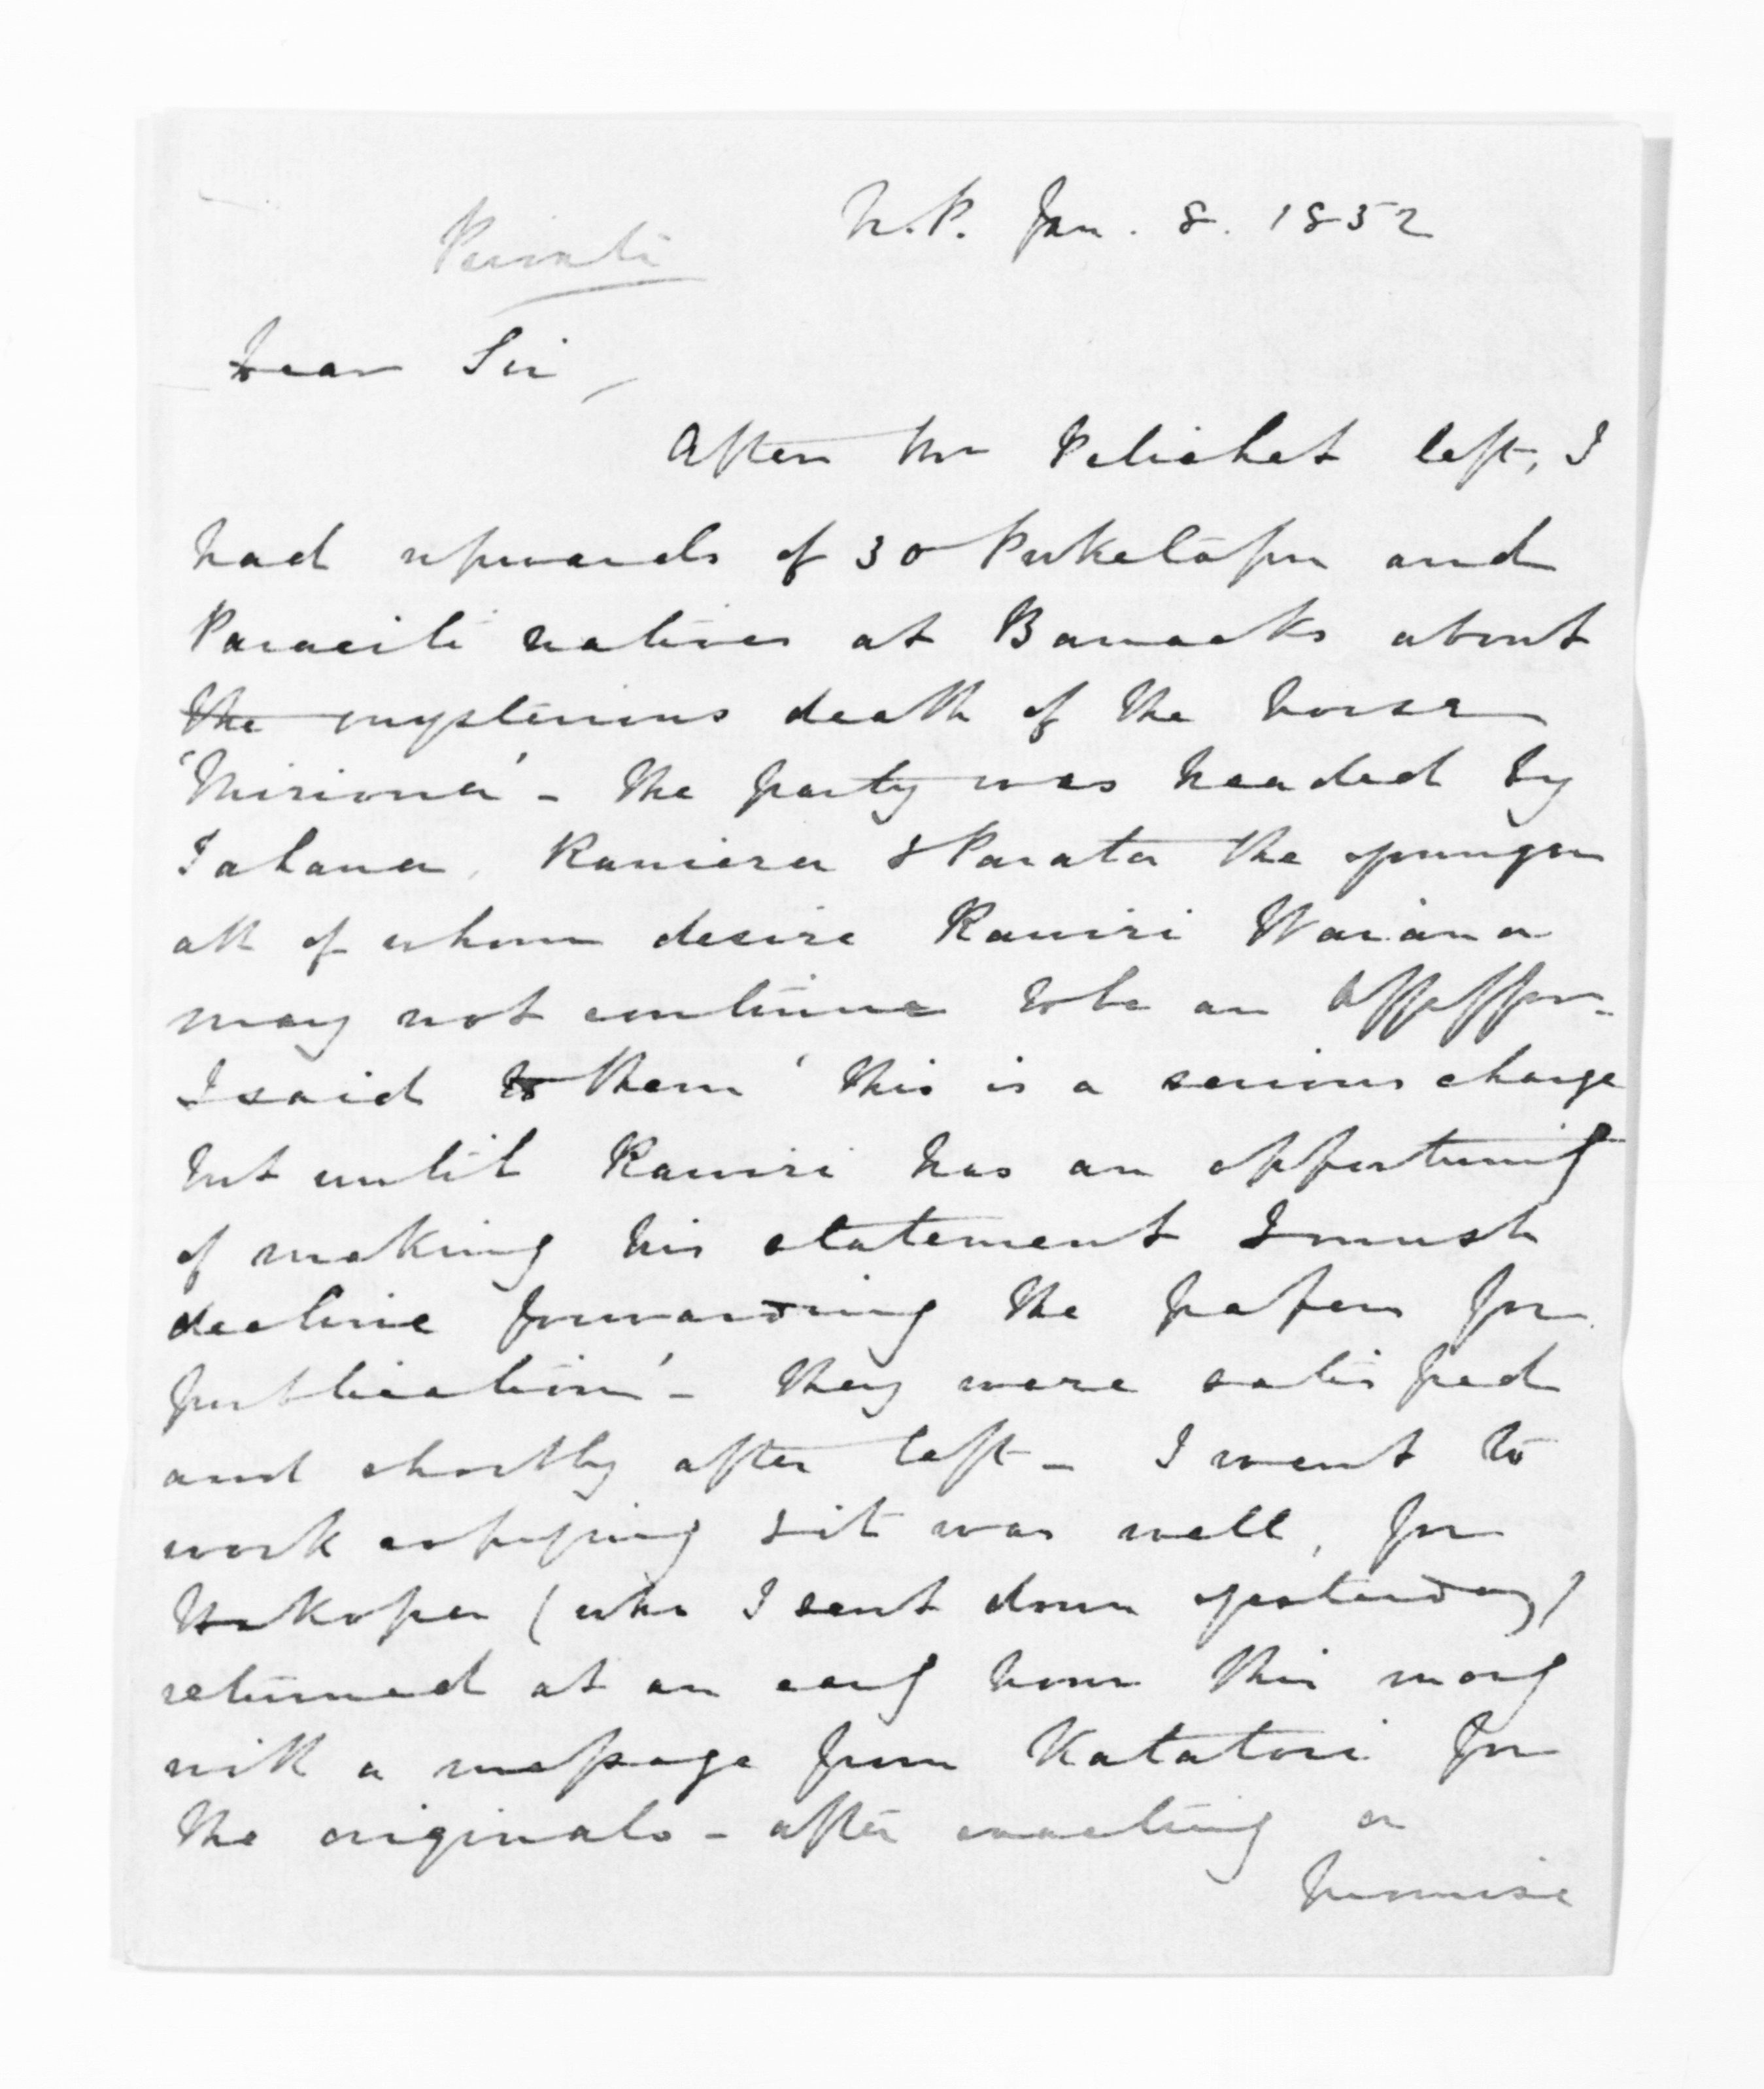 Private
N.P. Jan. 8. 1852
Dear Sir,
After Mr Pelichet left, I
had upwards of 30 Puketapu and
natives at Barracks about
the mysterious death of the horse
'Miriona' - The party was headed by
Tahana, Raniera & Parata the younger
all of whom desire Rawiri Waiaua
may not continue to be an Assessor -
I said to them 'this is a serious charge
but until Rawiri has an opportunity
of making his statement I must
decline forwarding the papers for
publication' - They were satisfied
and shortly after left - I went to
work copying & it was well, for
(who I sent down yesterday)
returned at an early hour this morg
with a message from Katatori for
the originals - after exacting a
promise